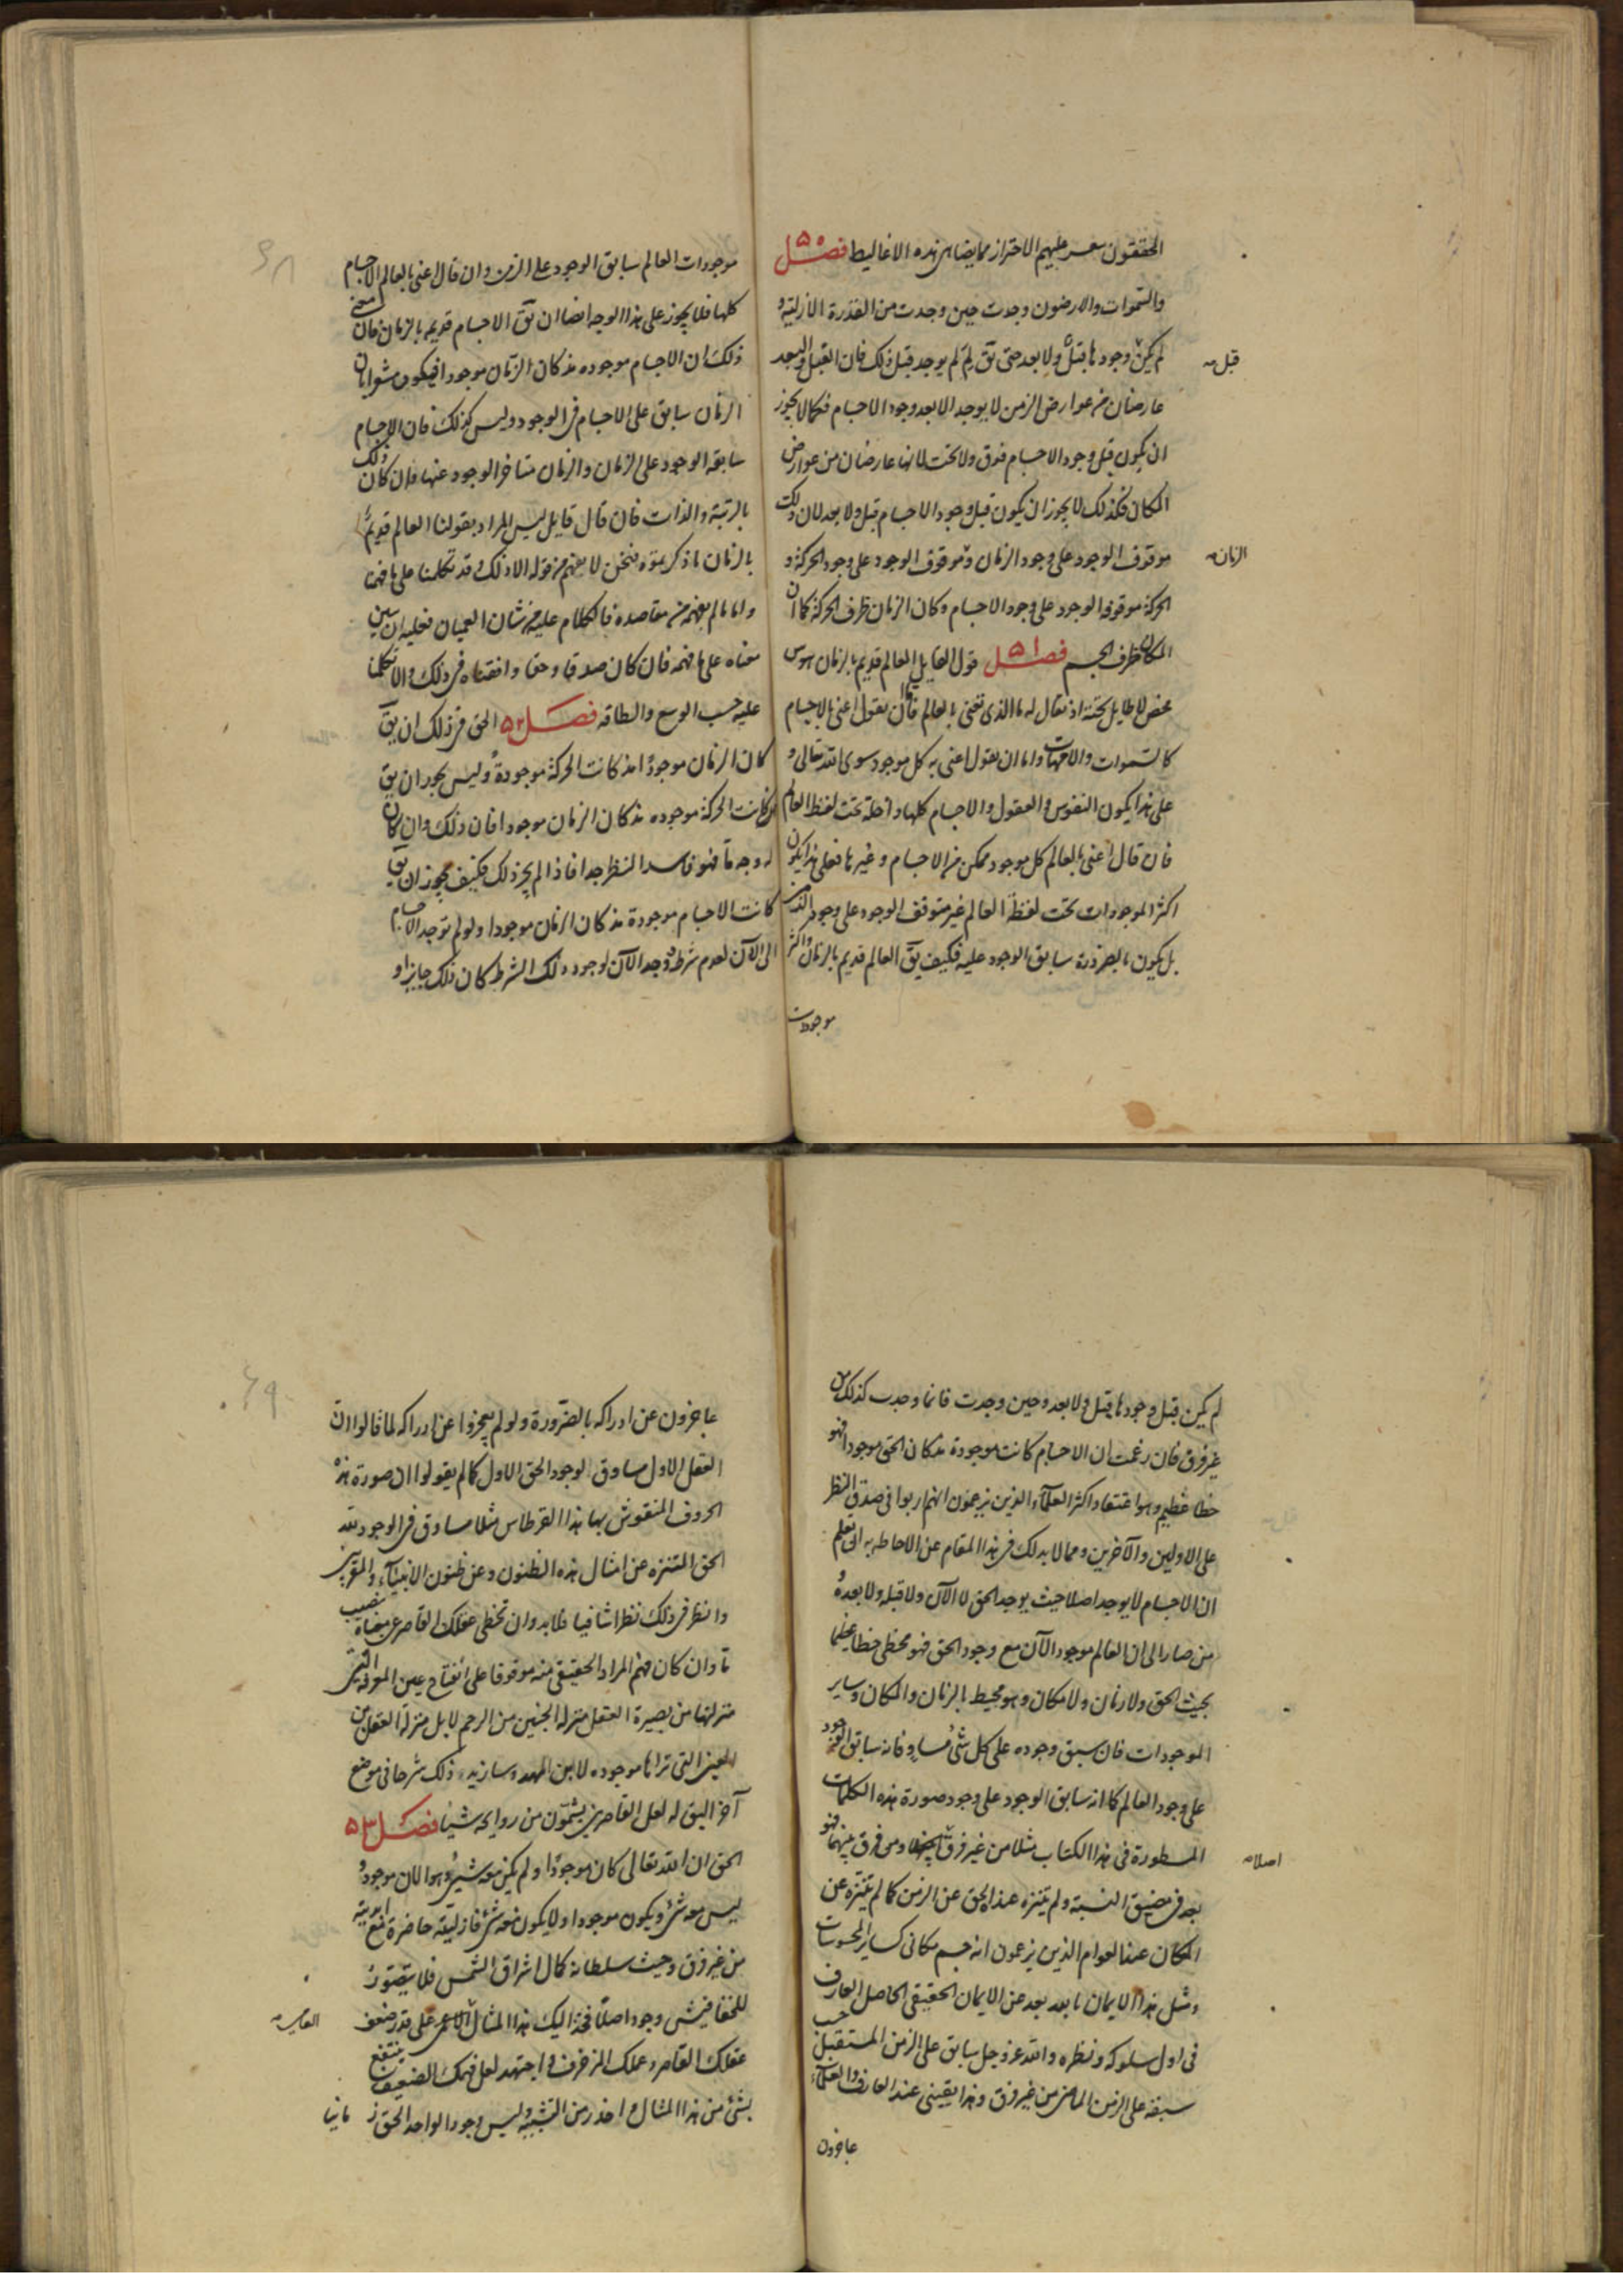 المحققون يعسر عليهم الاحتراز مما يضاهى هذه الاغاليط فصل ٥٠
والسموات والارضون وجدت حين وجدت من القدرة الازلية و
لم يكن وجودها قبل ولا بعد حتى يق لِمَ لم يوجد قبل ذلك فان القبل والبعد
قبل
عارضان من عوارض الزمن لا يوجد الا بعد وجود الاجسام فكما لا يجوز
ان يكون قبل وجود الاجسام فوق ولا تحت لانها عارضان من عوارض
المكان فكذلك لا يجوز ان يكون قبل وجود الاجسام قبل ولا بعد لان ذلك
موقوف الوجود على وجود الزمان وهو موقوف الوجود على وجود الحركة و
الزمان
الحركة موقوفة الوجود على وجود الاجسام وكان الزمان ظرف الحركة كما ان
المكان ظرف الجسم فصل ٥١ قول القايل العالم قديم بالزمان هوس
محض لا طايل تحته اذ يقال له ما الذى تعنى بالعالم فاما ان يقول اعنى به الاجسام
كالسموات والامهات واما ان يقول اعنى به كل موجود سوى الله تعالى و
على هذا يكون النفوس والعقول والاجسام كلها داخلة تحت لفظ العالم
فان قال اعنى بالعالم كل موجود ممكن من الاجسام وغيرها فعلى هذا يكون
اكثر الموجودات تحت لفظة العالم غير متوقف الوجود على وجود الزمان
بل يكون بالضرورة سابق الوجود عليه فكيف يق العالم قديم بالزمان واكثر
موجودات
موجودات العالم سابق الوجود على الزمن وان قال اعنى بالعالم الاجسام
كلها فلا يجوز على هذا الوجه ايضا ان يق الاجسام قديم بالزمان فان معنى
ذلك ان الاجسام موجوده مذ كان الزمان موجودا فيكون مشعرا بان
الزمان سابق على الاجسام فى الوجود وليس كذلك فان الاجسام
سابقة الوجود على الزمان والزمان متاخر الوجود عنها وان كان ذلك
بالرتبة والذات فان قال قايل ليس المراد بقولنا العالم قديم
بالزمان ما ذكرتموه فنحن لا نفهم من قوله الا ذلك وقد تكلمنا على ما فهمنا
واما ما لم نفهمه من مقاصده فالكلام عليه من شان العميان فعليه ان يبين
معناه على ما فهمه فان كان صدقا وحقا وافقناه فى ذلك والا تكلمنا
عليه حسب الوسع والطاقه فصل ٥٢ الحق فى ذلك ان يق
كان الزمان موجودًا مذ كانت الحركة موجودة وليس يجوز ان يق
كانت الحركة موجوده مذ كان الزمان موجودا فان ذلك وان كان
له وجه ما فهو فاسد النظر جدا فاذا لم يجز ذلك فكيف يجوز ان يق
كانت الاجسام موجودة مذ كان الزمان موجودا ولو لم توجد الاجسام
الى الآن لعدم شرط ووجد الآن لوجود ذلك الشرط كان ذلك جايزا و
لم يكن قبل وجودها قبل ولا بعد وحين وجدت فانما وجدت كذلك من
غير فرق فان زعمت ان الاجسام كانت موجودة مذ كان الحق موجودا فهو
خطا عظيم وهو اعتقاد اكثر العلماء الذين يزعمون انهم اربوا فى صدق النظر
على الاولين والآخرين ومما لا بد لك فى هذا المقام عن الاحاطه به ان تعلم
ان الاجسام لا يوجد اصلا حيث يوجد الحق لا الآن ولا قبله ولا بعده
من صار الى ان العالم موجود الآن مع وجود الحق فهو مخطى خطا عظيما
بحيث الحق ولا زمان ولا مكان وهو محيط بالزمان والمكان وساير
الموجودات فان سبق وجوده على كل شئ مساو فانه سابق الوجود
على وجود العالم كما انه سابق الوجود على وجود صورة هذه الكلمات
المسطورة فى هذا الكتاب مثلا من غير فرق ومن فرق بينهما فهو
اصلا
بعد فى مضيق النسبة ولم يتنزه عنده الحق عن الزمن كما لم يتنزه عن
المكان عند العوام الذين يزعمون انه جسم مكانى كساير المحسوسات
ومثل هذا الايمان بالله بعد بعد عن الايمان الحقيقى الحاصل للعارف
فى اول سلوكه ونظره والله عز وجل سابق على الزمن المستقبل حسب
سبقه على الزمن الماضى من غير فرق وهذا يقينى عند العارف والعلماء
عاجزون
عاجزون عن ادراكه بالضرورة ولو لم يعجزوا عن ادراكه لما قالوا ان
العقل الاول مساوق لوجود الحق الاول كما لم يقولوا ان صورة هذه
الحروف المنقوش بها هذا القرطاس مثلا مساوق فى الوجود لله
الحق المتنزه عن امثال هذه الظنون وعن ظنون الانبياء والمقربين
وانظر فى ذلك نظرا شافيا فلا بد وان تحظى عقلك القاصر من معناه بنصيب
ما وان كان فهم المراد الحقيقى منه موقوفا على انفتاح عين المعرفة التى
منزلتها من بصيرة العقل منزلة الجنين من الرحم لا بل منزلة العقل من
العين التى تراها موجوده لابن المهد وسازيد ذلك شرحا فى موضع
آخر اليق له لعل القاصرين يشمّون من روايحه شيئا فصل ٥٣
الحق ان الله تعالى كان موجودًا ولم يكن معه شئ وهو الآن موجود
ليس معه شئ ويكون موجودا ولا يكون معه شئ فازليته حاضرة مع ابديته
من غير فرق وحيث سلطانه كمال اشراق الشمس فلا يتصوّر
للخفافيش وجود اصلًا فخذ اليك هذا المثال على قدر ضعف
القاصر
عقلك القاصر وعملك المزخرف واجتهد لعل فهمك الضعيف ينتفع
بشئ من هذا المثال واحذر من التشبيه وليس وجود الواحد الحق